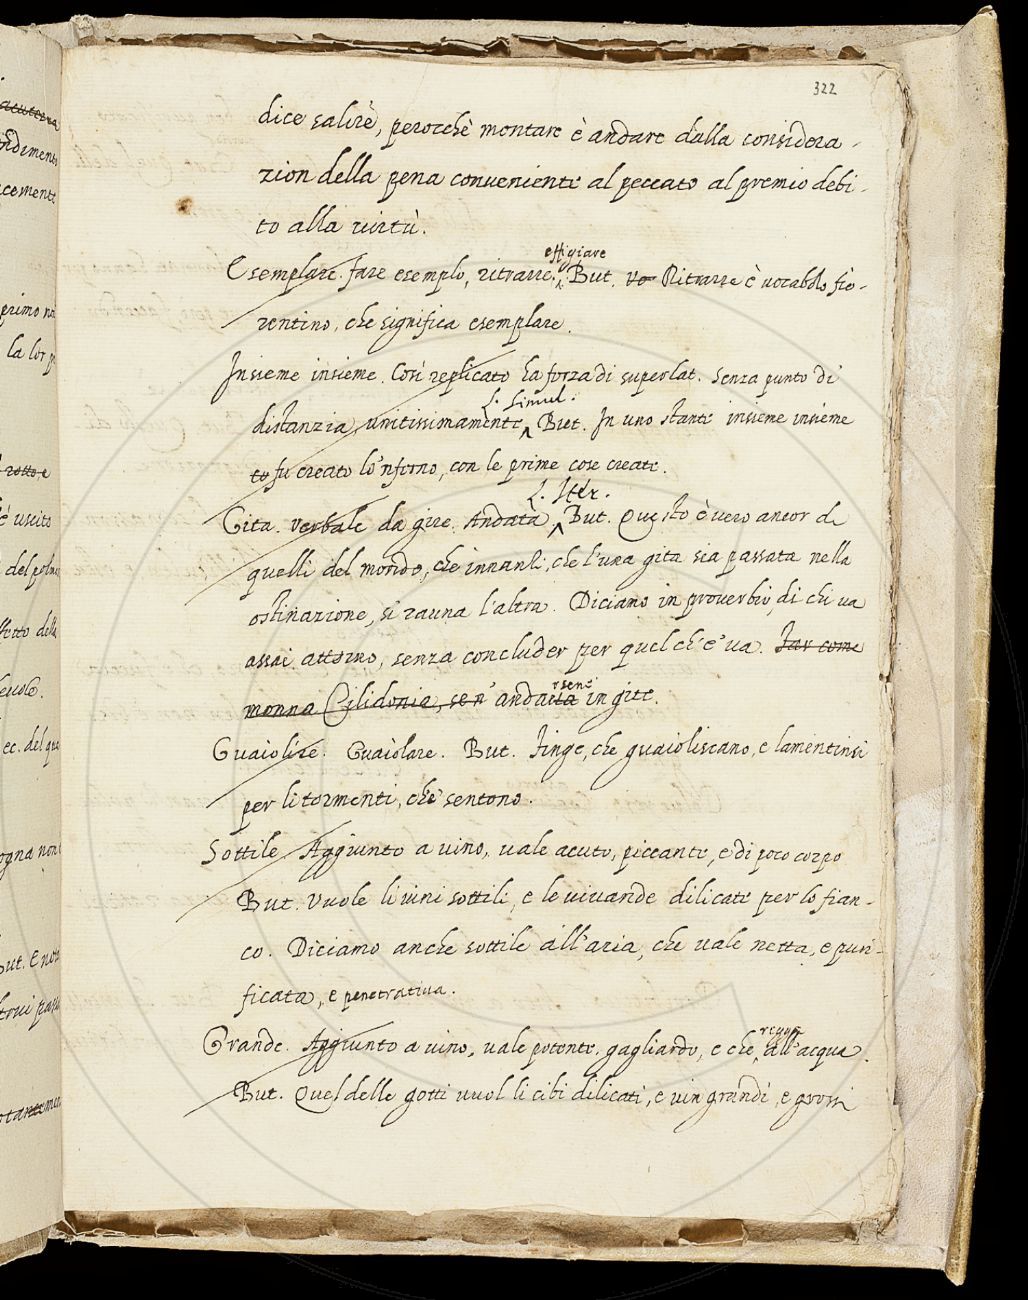 322
dice salire, perocchè montare è andare dalla considera-
zion della pena conveniente al peccato al premio debi-
to alla virtù.
effigiare
Esemplare. fare esempio, ritrarre. But. vo Ritrarre è vocabolo fio-
rentino, che significa esemplare.
Insieme insieme. Così replicato ha forza di superlat. senza punto di
L. Simul.
distanzia, unitissimamente, But. In uno stante insieme insieme
to fu creato lo 'nferno, con le prime cose create.
L. Iter.
Gita. verbale da gire. Andata, But. Questo è vero ancor di
quelli del mondo, che innanzi, che l'una gita sia passata nella
ostinazione, si rauna l'altra. Diciamo in proverbio, di chi va
assai attorno, senza concluder per quel ch' e' va. Far come
rsene
monna Cilidonia, se n' andava in gite.
Guaiolire. Guaiolare. But. Finge, che guaioliscano, e lamentinsi
per li tormenti, che sentono.
Sottile. Aggiunto a vino, vale acuto, piccante, e di poco corpo
But. Vuole li vini sottili, e le vivande dilicate per lo fian-
co. Diciamo anche sottile all'aria, che vale netta, e puri-
ficata, e penetrativa.
regge
Grande. Aggiunto a vino, vale potente, gagliardo, e che, all'acqua.
But. Quel delle gotti vuol li cibi dilicati, e vin grandi, e grossi
primo
è uscito
ec. del
But. E